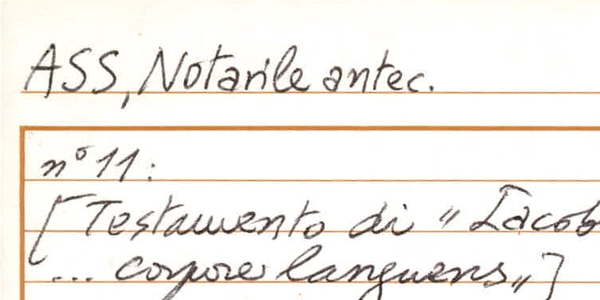 ASS, Notarile antec.
n° 11:
[Testamento di "Iacob
... corpore languens„]